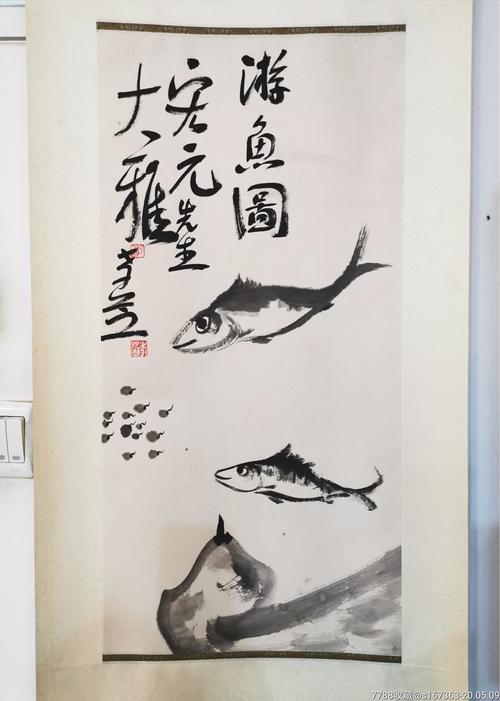 游魚圖
宏元先生
大雅
7788收藏@s167363-20.05.09